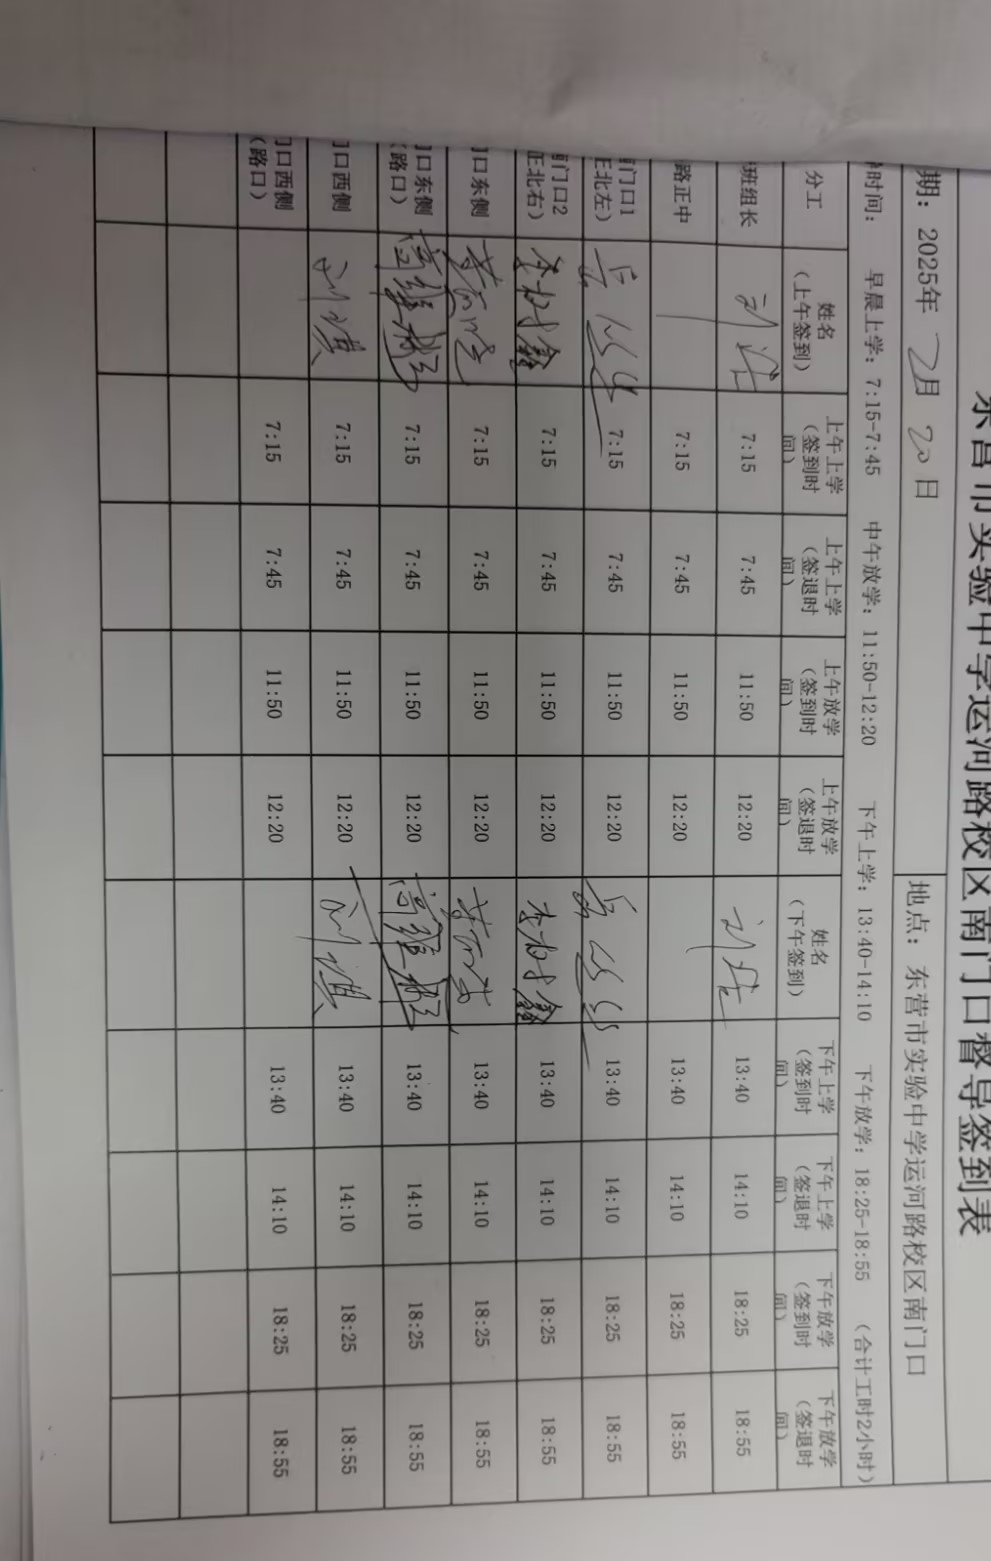 东营市实验中学运河路校区南门口督导签到表
期: 2025年 2月 20 日 地点: 东营市实验中学运河路校区南门口
时间: 早晨上学: 7:15-7:45 中午放学: 11:50-12:20 下午上学: 13:40-14:10 下午放学: 18:25-18:55 (合计工时2小时)
分工 姓名(上午签到) 上午上学(签到时间) 上午上学(签退时间) 上午放学(签到时间) 上午放学(签退时间) 姓名(下午签到) 下午上学(签到时间) 下午上学(签退时间) 下午放学(签到时间) 下午放学(签退时间)
班组长 7:15 7:45 11:50 12:20 13:40 14:10 18:25 18:55
路正中 7:15 7:45 11:50 12:20 13:40 14:10 18:25 18:55
门口1 正北左) 7:15 7:45 11:50 12:20 13:40 14:10 18:25 18:55
门口2 正北右) 李树鑫 7:15 7:45 11:50 12:20 李树鑫 13:40 14:10 18:25 18:55
口东侧 7:15 7:45 11:50 12:20 13:40 14:10 18:25 18:55
口东侧 (路口) 7:15 7:45 11:50 12:20 13:40 14:10 18:25 18:55
口西侧 刘琪 7:15 7:45 11:50 12:20 刘琪 13:40 14:10 18:25 18:55
口西侧 (路口) 7:15 7:45 11:50 12:20 13:40 14:10 18:25 18:55